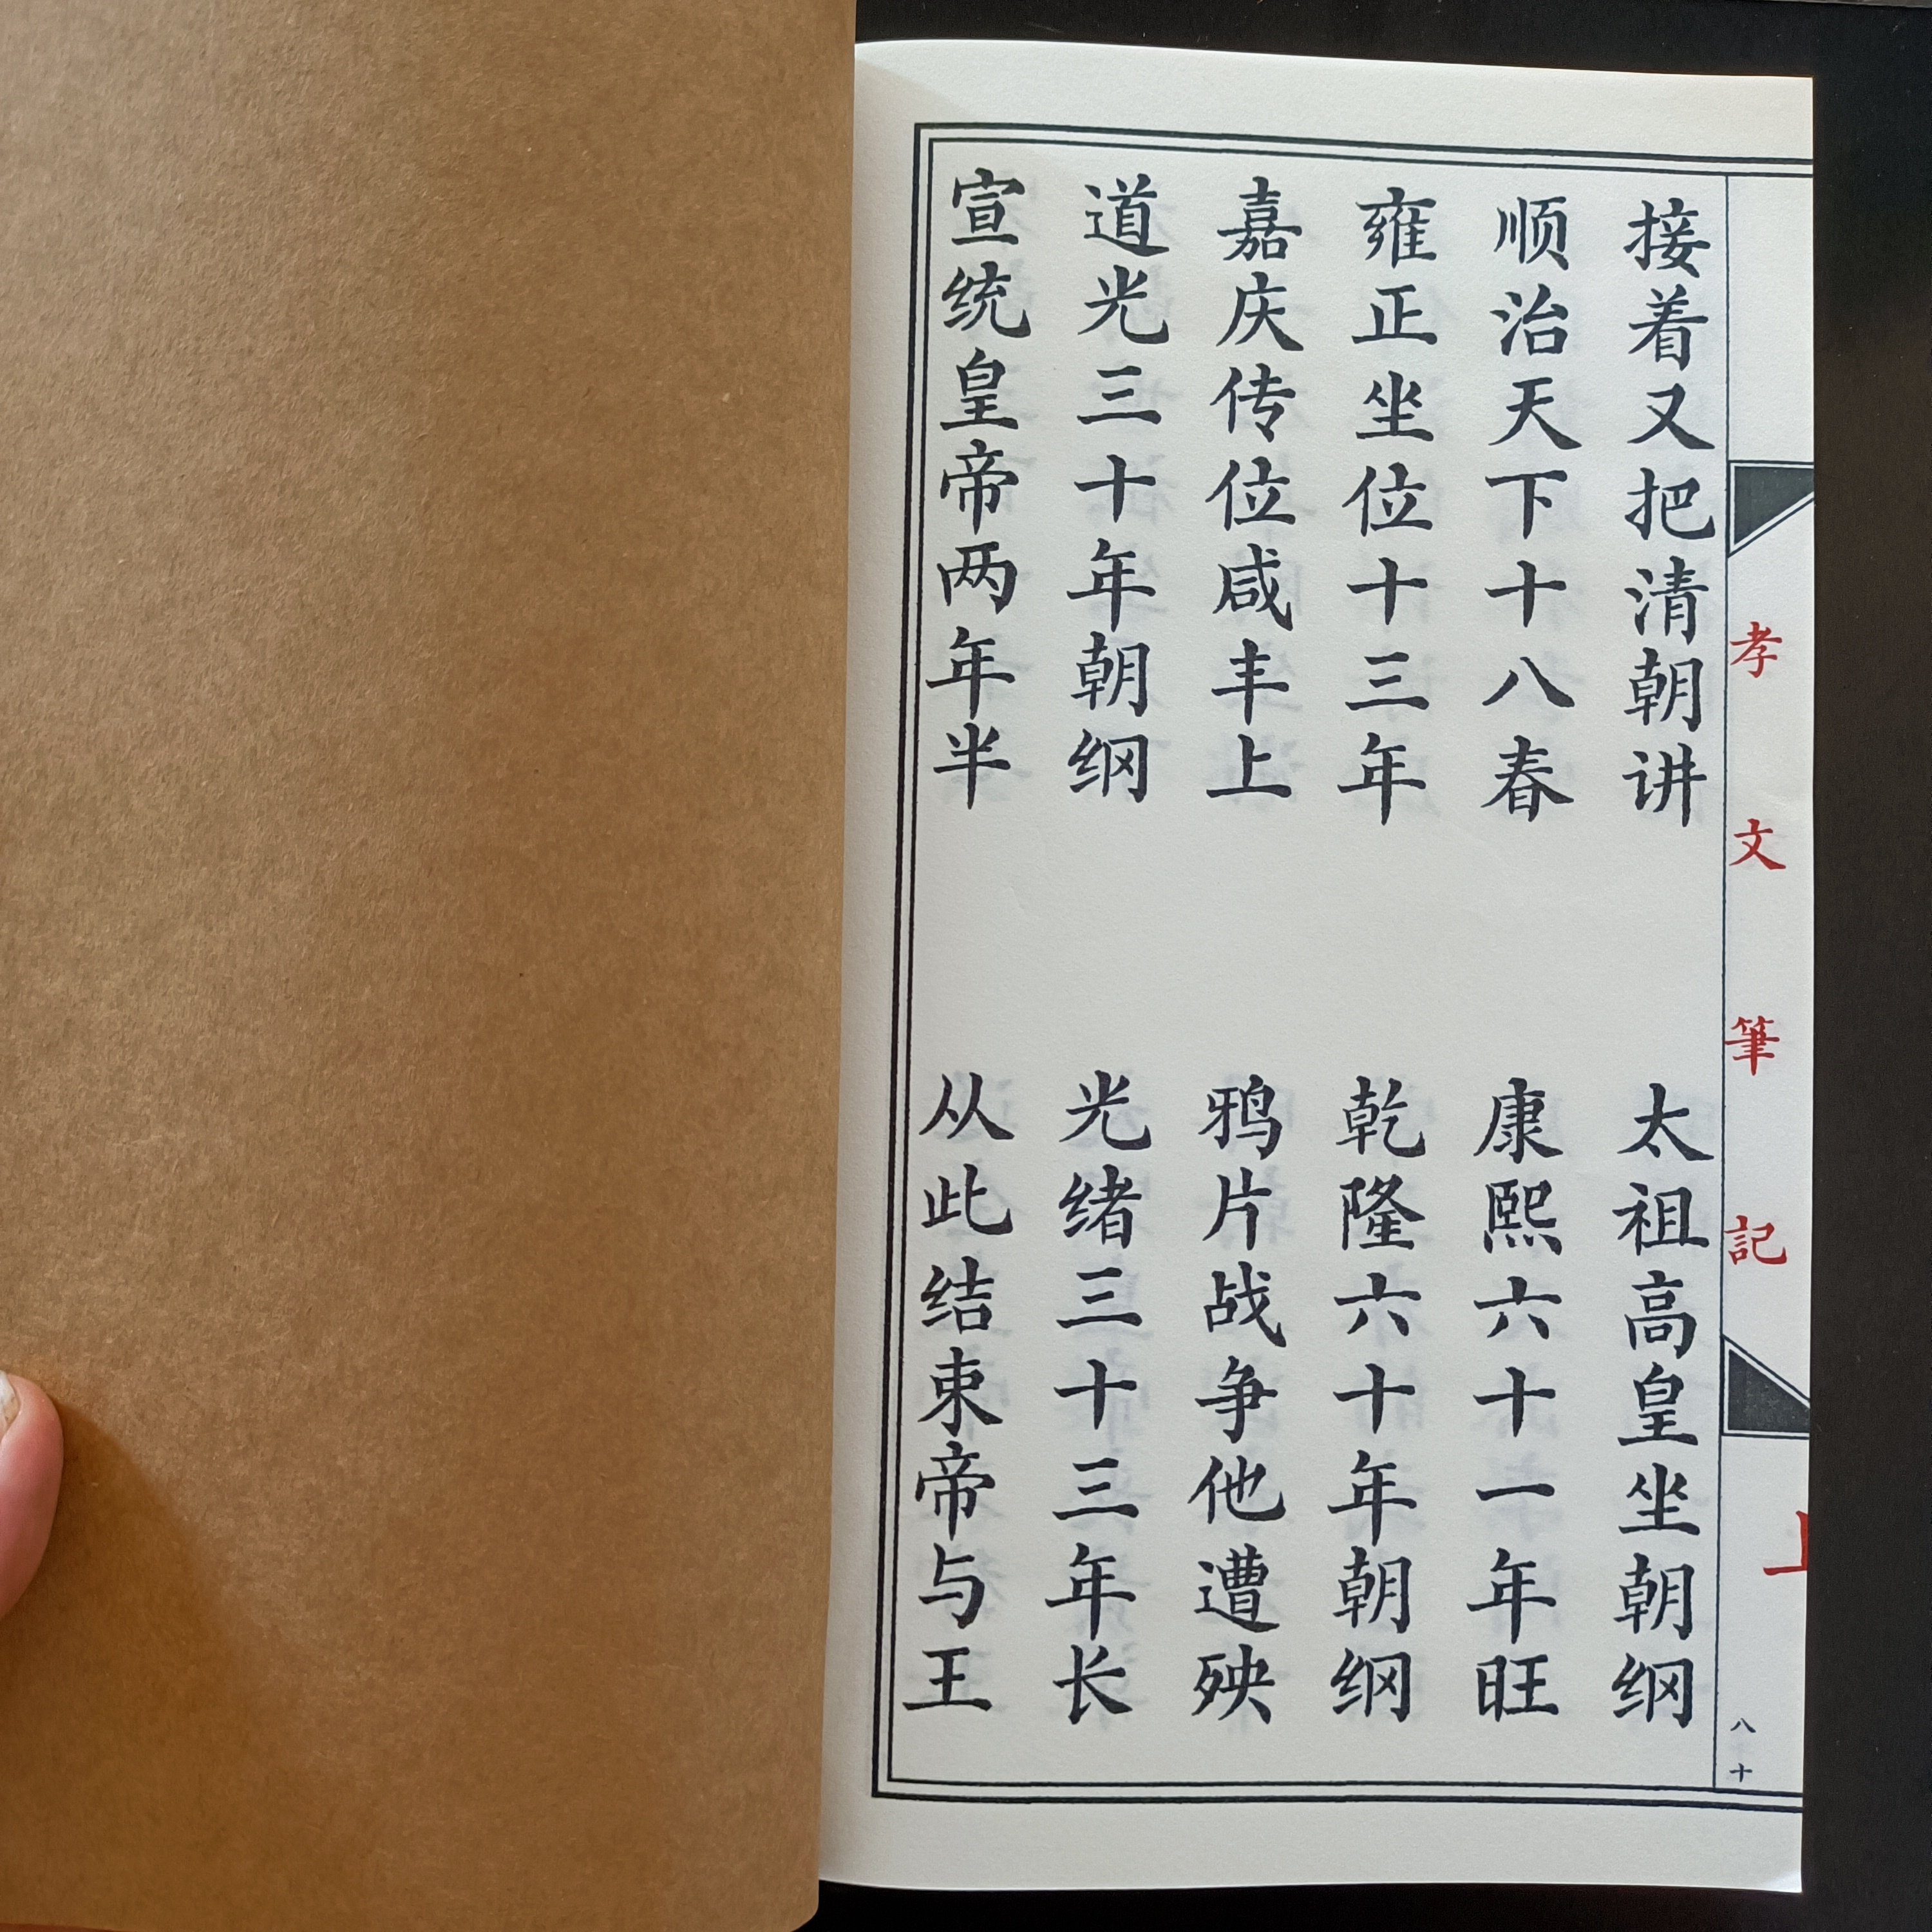 孝文筆記
上
八十
接着又把清朝讲 太祖高皇坐朝纲
顺治天下十八春 康熙六十一年旺
雍正坐位十三年 乾隆六十年朝纲
嘉庆传位咸丰上 鸦片战争他遭殃
道光三十年朝纲 光绪三十三年长
宣统皇帝两年半 从此结束帝与王